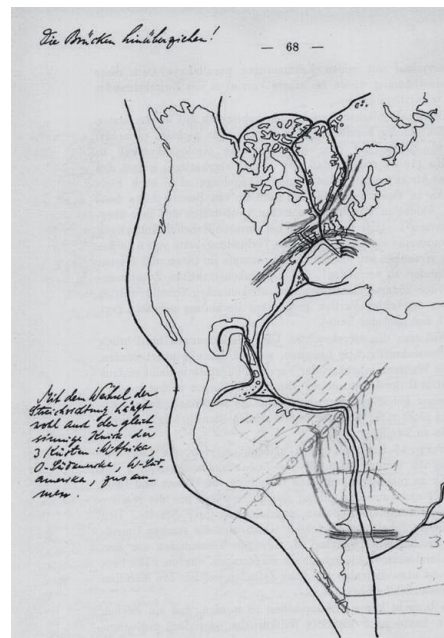 Die Brücken hinüberziehen!
— 68 —
Mit dem Wechsel der
Streichrichtung hängt
wohl auch der gleich-
sinnige Knick der
3 Küsten: W-Afrika,
O-Südamerika, W-Süd-
amerika, zusam-
men.
1
3